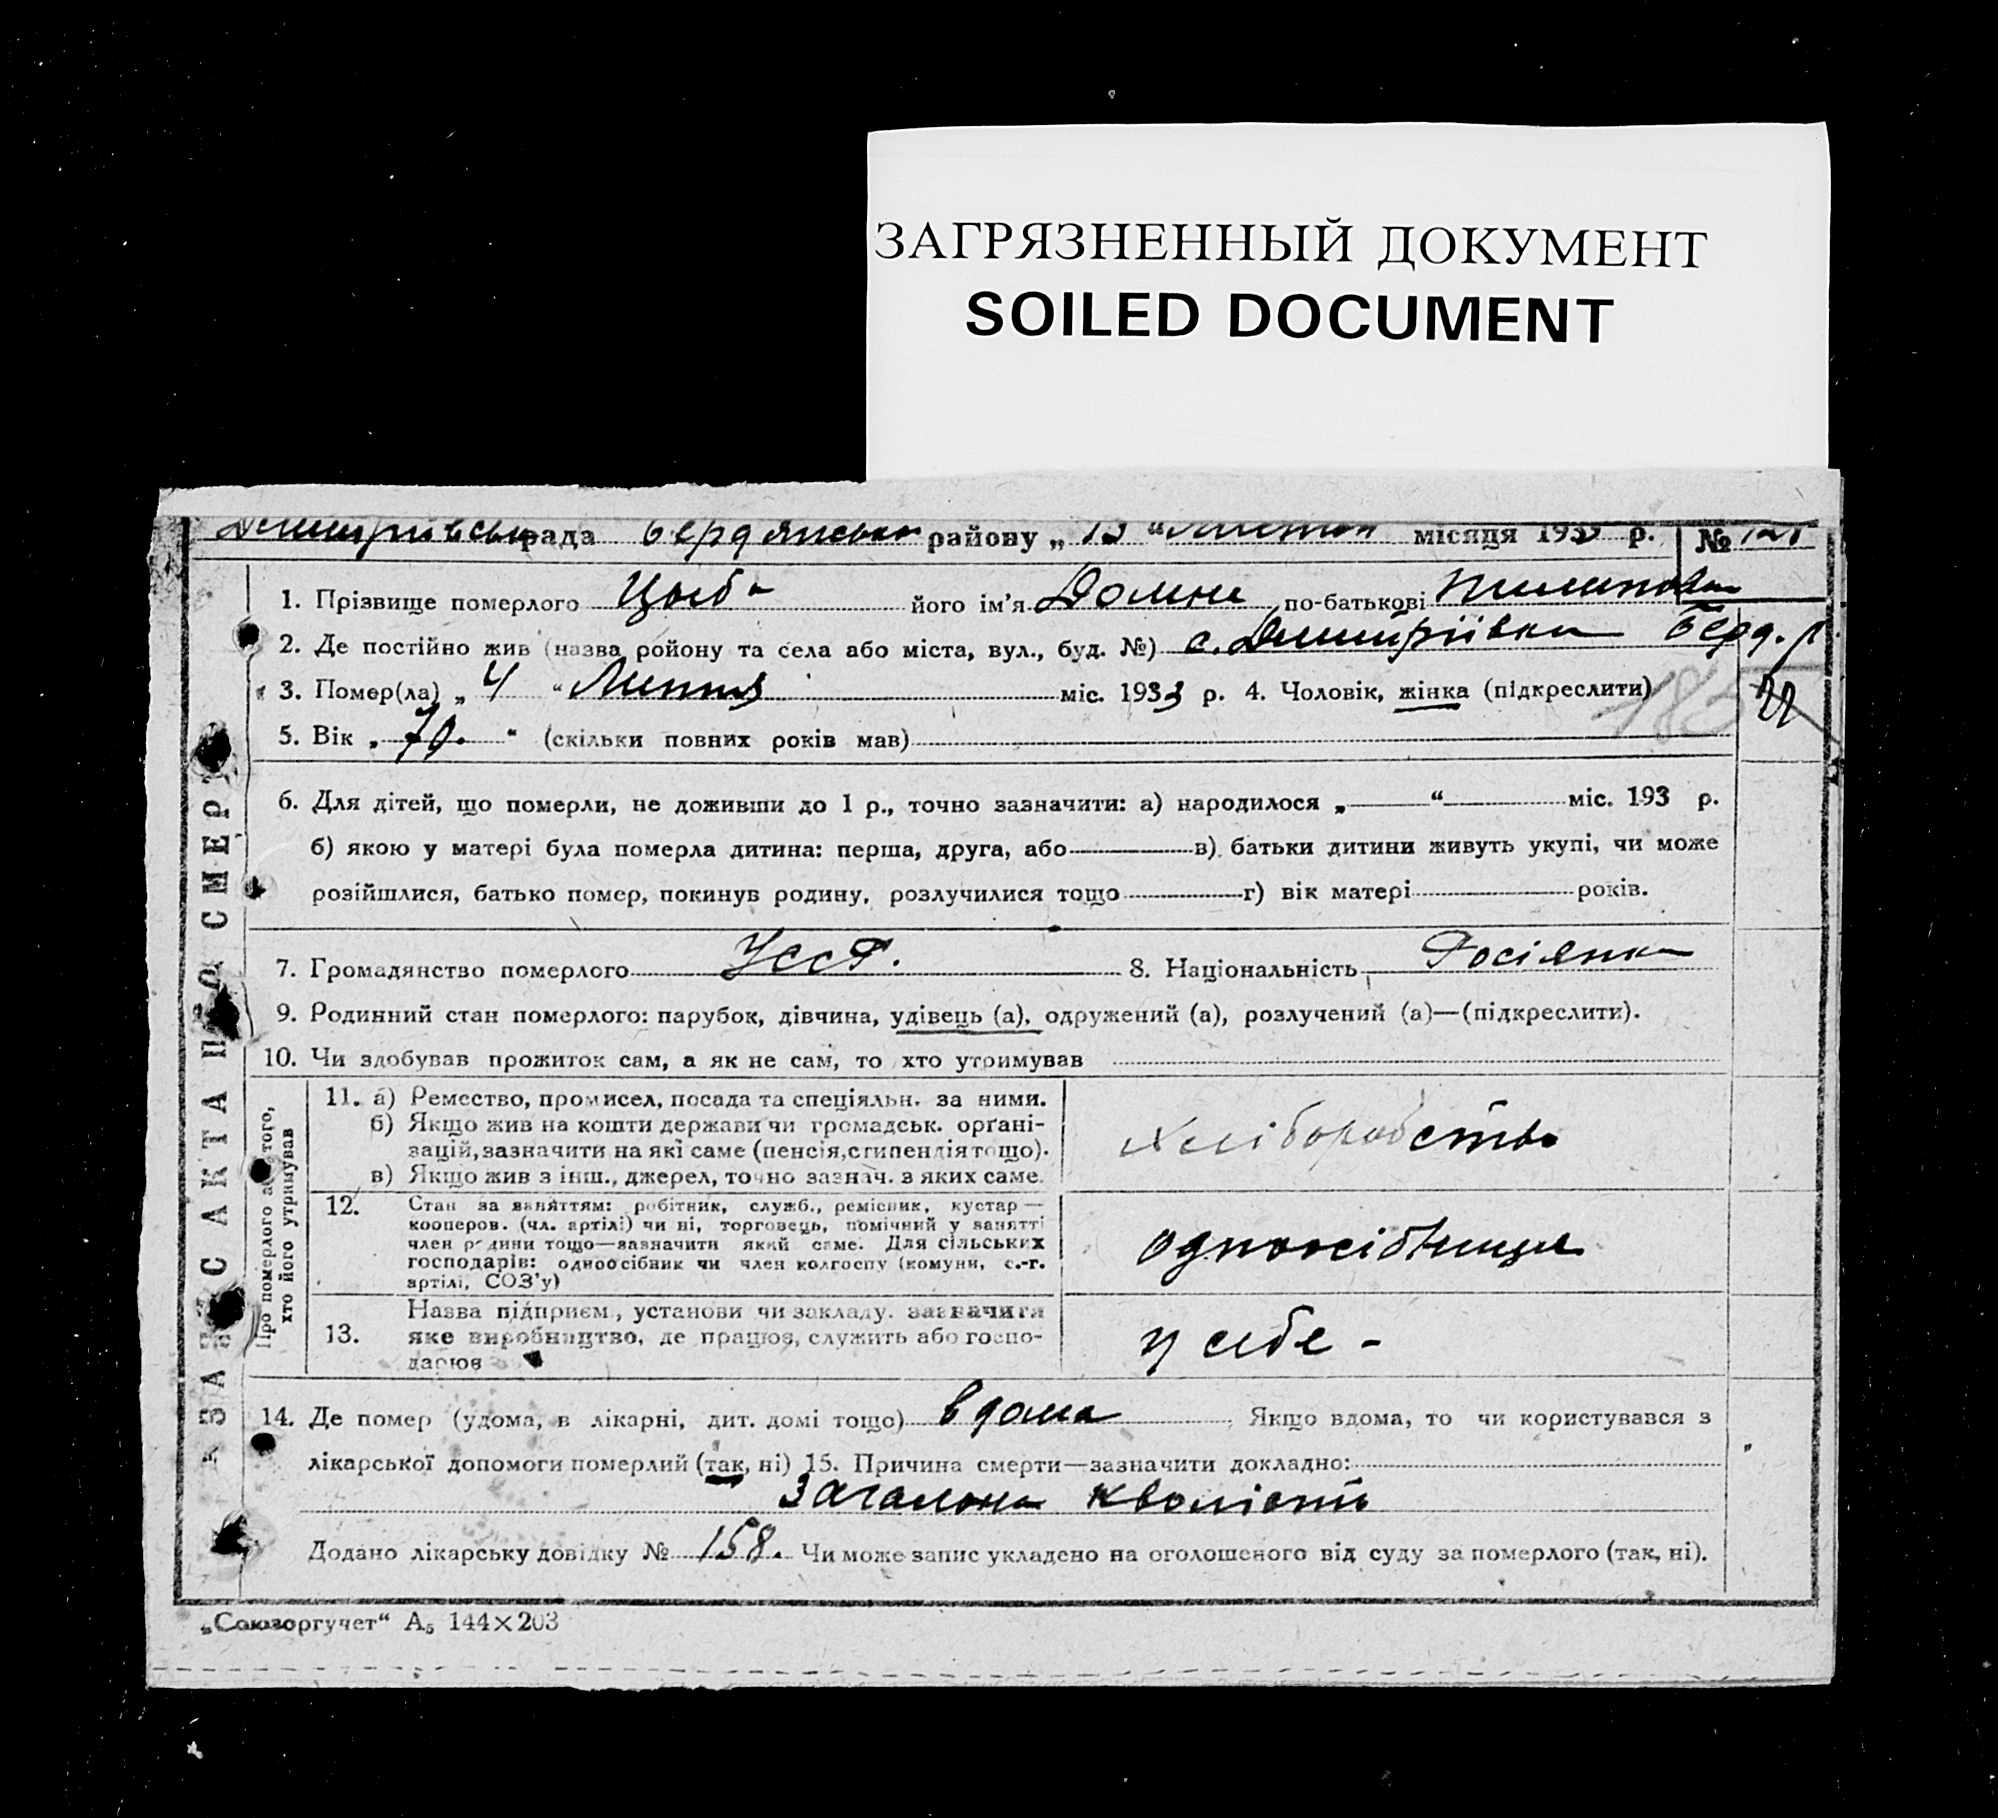 ЗАГРЯЗНЕННЫЙ ДОКУМЕНТ
SOILED DOCUMENT
рада району „ “ місяця 193 р. №
1. Прізвище померлого Цыба його ім'я Домна по-батькові
2. Де постійно жив (назва ройону та села або міста, вул., буд. №) с. Дмитріівка Берд. р.
3. Помер(ла) „ 4 “ Липня міс. 1933 р. 4. Чоловік, жінка (підкреслити)
5. Вік „ 70. “ (скільки повних років мав)
6. Для дітей, що померли, не доживши до 1 р., точно зазначити: а) народилося „ “ міс. 193 р.
б) якою у матері була померла дитина: перша, друга, або в) батьки дитини живуть укупі, чи може
розійшлися, батько помер, покинув родину, розлучилися тощо г) вік матері років.
7. Громадянство померлого УССР. 8. Національність Росіянка
9. Родинний стан померлого: парубок, дівчина, удівець (а), одружений (а), розлучений (а)—(підкреслити).
10. Чи здобував прожиток сам, а як не сам, то хто утримував
11. а) Ремество, промисел, посада та спеціяльн. за ними.
б) Якщо жив на кошти держави чи громадськ. органі-
зацій, зазначити на які саме (пенсія, стипендія тощо).
в) Якщо жив з інш., джерел, точно зазнач. з яких саме.
хліборобство
12. Стан за заняттям: робітник, служб., ремісник, кустар—
кооперов. (чл. артілі) чи ні, торговець, помічний у занятті
член родини тощо—зазначити який саме. Для сільських
господарів: одноосібник чи член колгоспу (комуни, с.-г.
артілі, СОЗ'у)
одноосібниця
13. Назва підприєм., установи чи закладу. зазначити
яке виробництво, де працює, служить або госпо-
дарює
у себе -
14. Де помер (удома, в лікарні, дит. домі тощо) вдома Якщо вдома, то чи користувався з
лікарської допомоги померлий (так, ні) 15. Причина смерти—зазначити докладно:
Загальна кволість
Додано лікарську довідку № 158. Чи може запис укладено на оголошеного від суду за померлого (так, ні).
„Союзоргучет“ А₅ 144×203